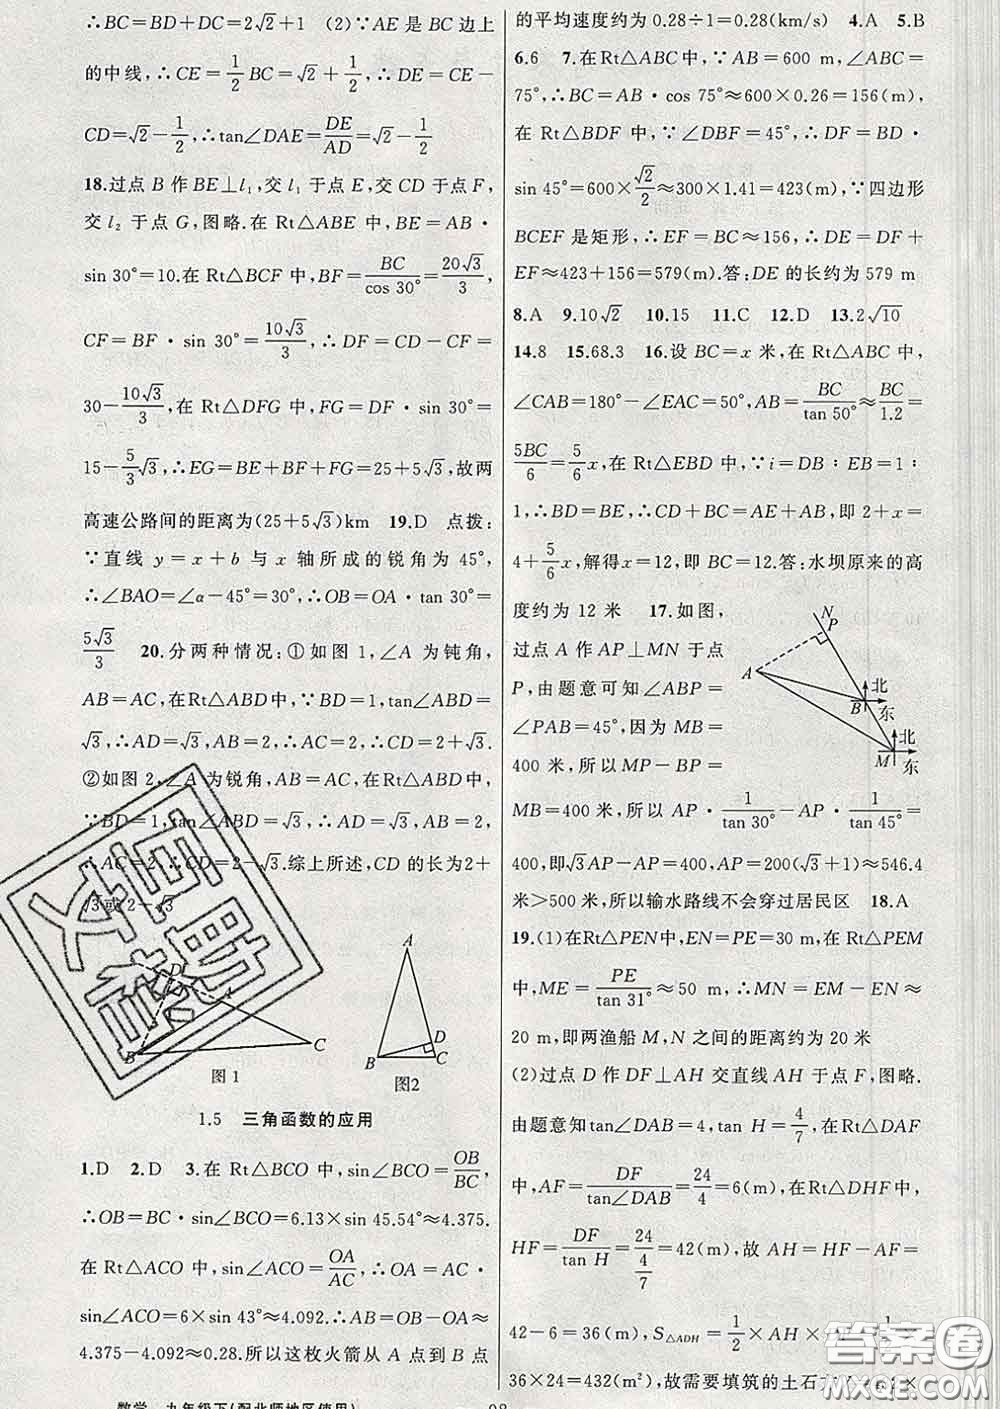 ∴BC=BD+DC=2√2+1　(2)∵AE是BC边上
的中线,∴CE=1/2BC=√2+1/2,∴DE=CE−
CD=√2−1/2,∴tan∠DAE=DE/AD=√2−1/2
18.过点B作BE⊥l₁,交l₁于点E,交CD于点F,
交l₂于点G,图略.在Rt△ABE中,BE=AB·
sin 30°=10.在Rt△BCF中,BF=BC/cos 30°=20√3/3,
CF=BF·sin 30°=10√3/3,∴DF=CD−CF=
30−10√3/3,在Rt△DFG中,FG=DF·sin 30°=
15−5/3√3,∴EG=BE+BF+FG=25+5√3,故两
高速公路间的距离为(25+5√3)km　19.D　点拨:
∵直线y=x+b与x轴所成的锐角为45°,
∴∠BAO=∠α−45°=30°,∴OB=OA·tan 30°=
5√3/3　20.分两种情况:①如图1,∠A为钝角,
AB=AC,在Rt△ABD中,∵BD=1,tan∠ABD=
√3,∴AD=√3,AB=2,∴AC=2,∴CD=2+√3.
②如图2,∠A为锐角,AB=AC,在Rt△ABD中,
∵BD=1,tan∠ABD=√3,∴AD=√3,AB=2,
∴AC=2,∴CD=2−√3.综上所述,CD的长为2+
√3或2−√3
A
D
A
B
C
图1
A
D
B
C
图2
1.5　三角函数的应用
1.D　2.D　3.在Rt△BCO中,sin∠BCO=OB/BC,
∴OB=BC·sin∠BCO=6.13×sin 45.54°≈4.375.
在Rt△ACO中,sin∠ACO=OA/AC,∴OA=AC·
sin∠ACO=6×sin 43°≈4.092.∴AB=OB−OA≈
4.375−4.092≈0.28.所以这枚火箭从A点到B点
数学　九年级下(配北师地区使用)
98
的平均速度约为0.28÷1=0.28(km/s)　4.A　5.B
6.6　7.在Rt△ABC中,∵AB=600 m,∠ABC=
75°,∴BC=AB·cos 75°≈600×0.26=156(m),
在Rt△BDF中,∵∠DBF=45°,∴DF=BD·
sin 45°=600×√2/2≈300×1.41=423(m),∵四边形
BCEF是矩形,∴EF=BC≈156,∴DE=DF+
EF≈423+156=579(m).答:DE的长约为579 m
8.A　9.10√2　10.15　11.C　12.D　13.2√10
14.8　15.68.3　16.设BC=x米,在Rt△ABC中,
∠CAB=180°−∠EAC=50°,AB=BC/tan 50°≈BC/1.2=
5BC/6=5/6x,在Rt△EBD中,∵i=DB∶EB=1∶
1,∴BD=BE,∴CD+BC=AE+AB,即2+x=
4+5/6x,解得x=12,即BC=12.答:水坝原来的高
度约为12米　17.如图,
过点A作AP⊥MN于点
P,由题意可知∠ABP=
∠PAB=45°,因为MB=
400米,所以MP−BP=
MB=400米,所以AP·1/tan 30°−AP·1/tan 45°=
400,即√3AP−AP=400,AP=200(√3+1)≈546.4
米>500米,所以输水路线不会穿过居民区　18.A
N
P
A
B
北
东
北
M
东
19.(1)在Rt△PEN中,EN=PE=30 m,在Rt△PEM
中,ME=PE/tan 31°≈50 m,∴MN=EM−EN≈
20 m,即两渔船M,N之间的距离约为20米
(2)过点D作DF⊥AH交直线AH于点F,图略.
由题意知tan∠DAB=4,tan H=4/7,在Rt△DAF
中,AF=DF/tan∠DAB=24/4=6(m),在Rt△DHF中,
HF=DF/tan H=24/(4/7)=42(m),故AH=HF−AF=
42−6=36(m),S△ADH=1/2×AH×DF=1/2×
36×24=432(m²),故需要填筑的土石方
答案圈